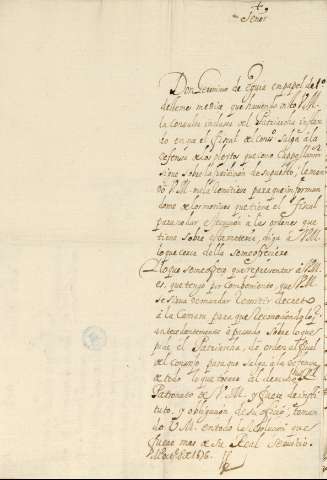 +
Señor
Don Geronimo de Eguia en papel de 1º
deste me dize que haviendo visto V.M.
la consulta inclusa del Patriarcha instan
do en que el fiscal del Conso salga a la
defensa de los pleytos que
sigue sobre la de man
do V.M. me la remitiese para que informan
dome de los motivos que tiene el fiscal
para no dar a las ordenes que
tiene sobre esta materia, diga a V.M.
lo que cerca della se me ofreziere
Lo que se me ofreze que representar a V.
M. es, que tengo por conveniente, que V.M.
se sirva de mandar remitir decreto
a la Camara para que reconociendo lo q
antecedentemente a pasado sobre lo que
pide el Patriarcha, de orden al fiscal
del Consejo para que salga a la defensa
de todo lo que tocare al derecho del
Patronato de V.M. y fuere de su insti
tuto, y obligacion de su oficio, toman
do V.M. en todo la resolucion que
fuere mas de su Real servicio.
1676.